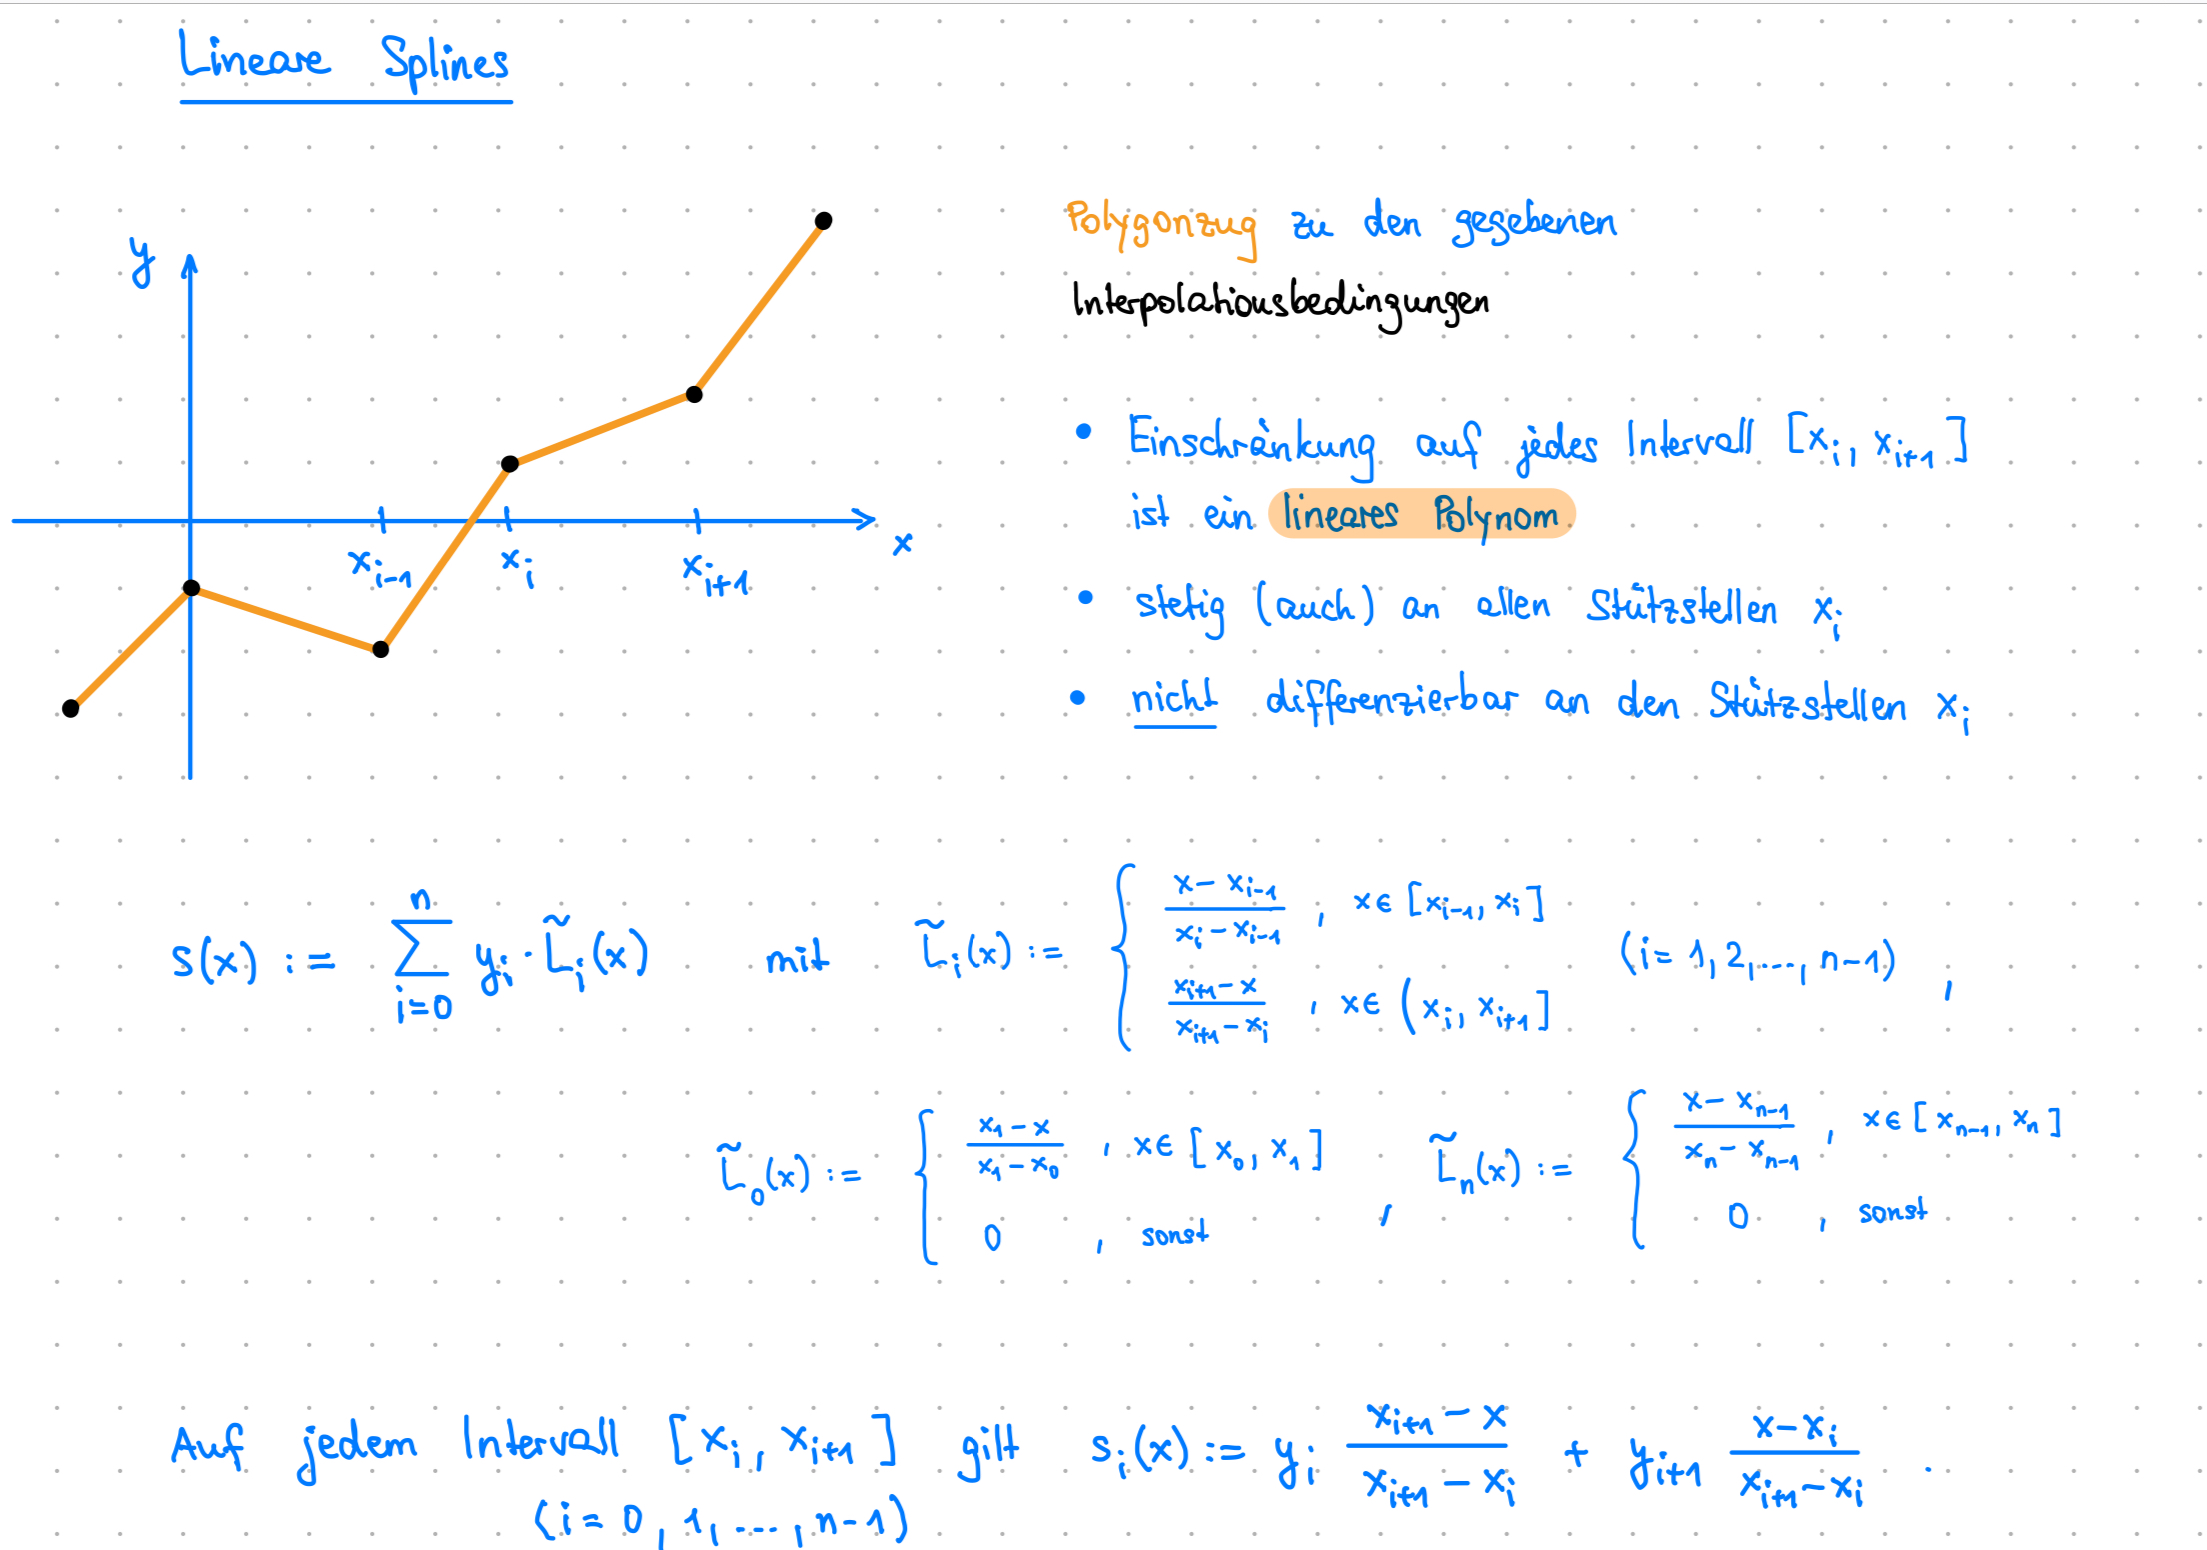 Lineare Splines
y
x
x_{i-1} x_i x_{i+1}
Polygonzug zu den gegebenen
Interpolationsbedingungen
• Einschränkung auf jedes Intervall [x_i, x_{i+1}]
ist ein lineares Polynom
• stetig (auch) an allen Stützstellen x_i
• nicht differenzierbar an den Stützstellen x_i
s(x) := \sum_{i=0}^{n} y_i · \tilde{L}_i(x) mit \tilde{L}_i(x) := { \frac{x - x_{i-1}}{x_i - x_{i-1}} , x ∈ [x_{i-1}, x_i]
\frac{x_{i+1} - x}{x_{i+1} - x_i} , x ∈ (x_i, x_{i+1}] (i = 1, 2, ..., n-1) ,
\tilde{L}_0(x) := { \frac{x_1 - x}{x_1 - x_0} , x ∈ [x_0, x_1]
0 , sonst ,
\tilde{L}_n(x) := { \frac{x - x_{n-1}}{x_n - x_{n-1}} , x ∈ [x_{n-1}, x_n]
0 , sonst
Auf jedem Intervall [x_i, x_{i+1}] gilt s_i(x) := y_i \frac{x_{i+1} - x}{x_{i+1} - x_i} + y_{i+1} \frac{x - x_i}{x_{i+1} - x_i} .
(i = 0, 1, ..., n-1)